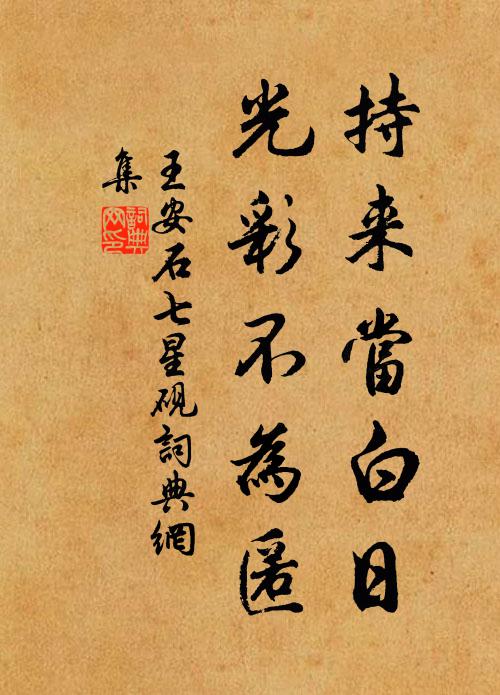 持来當白日
光彩不為匿
王安石七星硯詞典網
集
詞典
網印